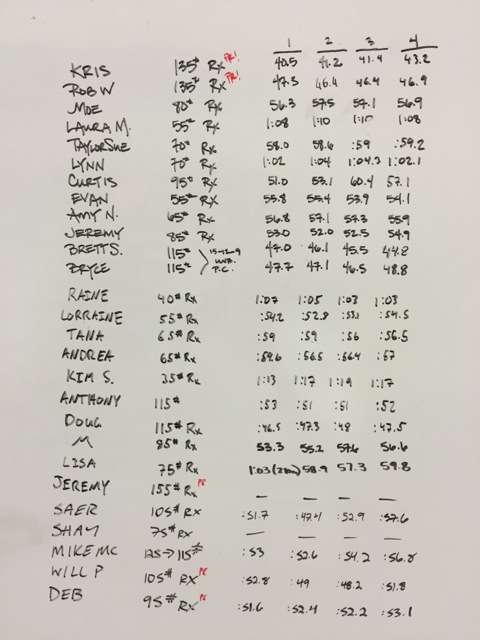 1 2 3 4
KRIS 135# Rx PR! 40.5 41.2 41.4 43.2
ROB W 135# Rx PR! 47.3 46.4 46.4 46.9
MOE 80# Rx 56.3 57.5 57.1 56.9
LAURA M. 55# Rx 1:08 1:10 1:10 1:08
TAYLORSUE 70# Rx 58.0 58.6 :59 :59.2
LYNN 70# Rx 1:02 1:04 1:04.3 1:02.1
CURTIS 95# Rx 51.0 53.1 60.4 57.1
EVAN 55# Rx 55.8 55.4 53.9 54.1
AMY N. 65# Rx 56.8 57.1 57.3 55.9
JEREMY 85# Rx 53.0 52.0 52.5 54.9
BRETT S. 115# 15-12-9 47.0 46.1 45.5 44.8
BRYCE 115# UNB. P.C. 47.7 47.1 46.5 48.8
RAINE 40# Rx 1:07 1:05 1:03 1:03
LORRAINE 55# Rx :54.2 :52.8 :53.1 :54.5
TANA 65# Rx :59 :59 :56 :56.5
ANDREA 65# Rx :59.6 :56.5 :56.4 :57
KIM S. 35# Rx 1:13 1:17 1:19 1:17
ANTHONY 115# :53 :51 :51 :52
DOUG 115# Rx :46.5 :47.3 :48 :47.5
M 85# Rx 53.3 55.2 57.6 56.6
LISA 75# Rx 1:03 58.9 57.3 59.8
JEREMY 155# Rx PR — — — —
SAER 105# Rx :51.7 :47.4 :52.9 :57.6
SHAY 75# Rx — — — —
MIKE MC 125→115# :53 :52.6 :54.2 :56.8
WILL P 105# RX PR :52.8 :49 :48.2 :51.8
DEB 95# RX PR :51.6 :52.4 :52.2 :53.1